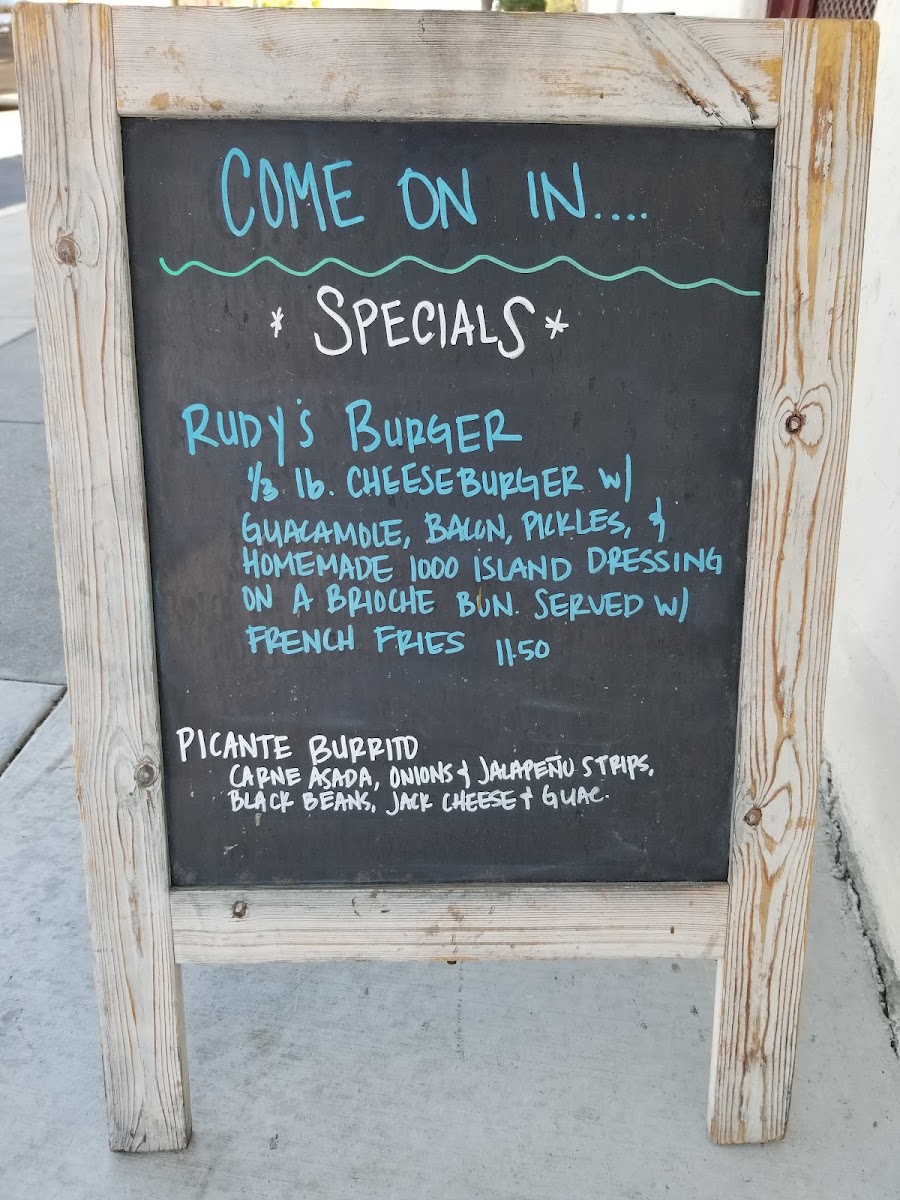 COME ON IN....
* SPECIALS *
RUDY'S BURGER
1/3 lb. CHEESEBURGER W/
GUACAMOLE, BACON, PICKLES, &
HOMEMADE 1000 ISLAND DRESSING
ON A BRIOCHE BUN. SERVED W/
FRENCH FRIES 11.50
PICANTE BURRITO
CARNE ASADA, ONIONS & JALAPEÑO STRIPS,
BLACK BEANS, JACK CHEESE & GUAC.